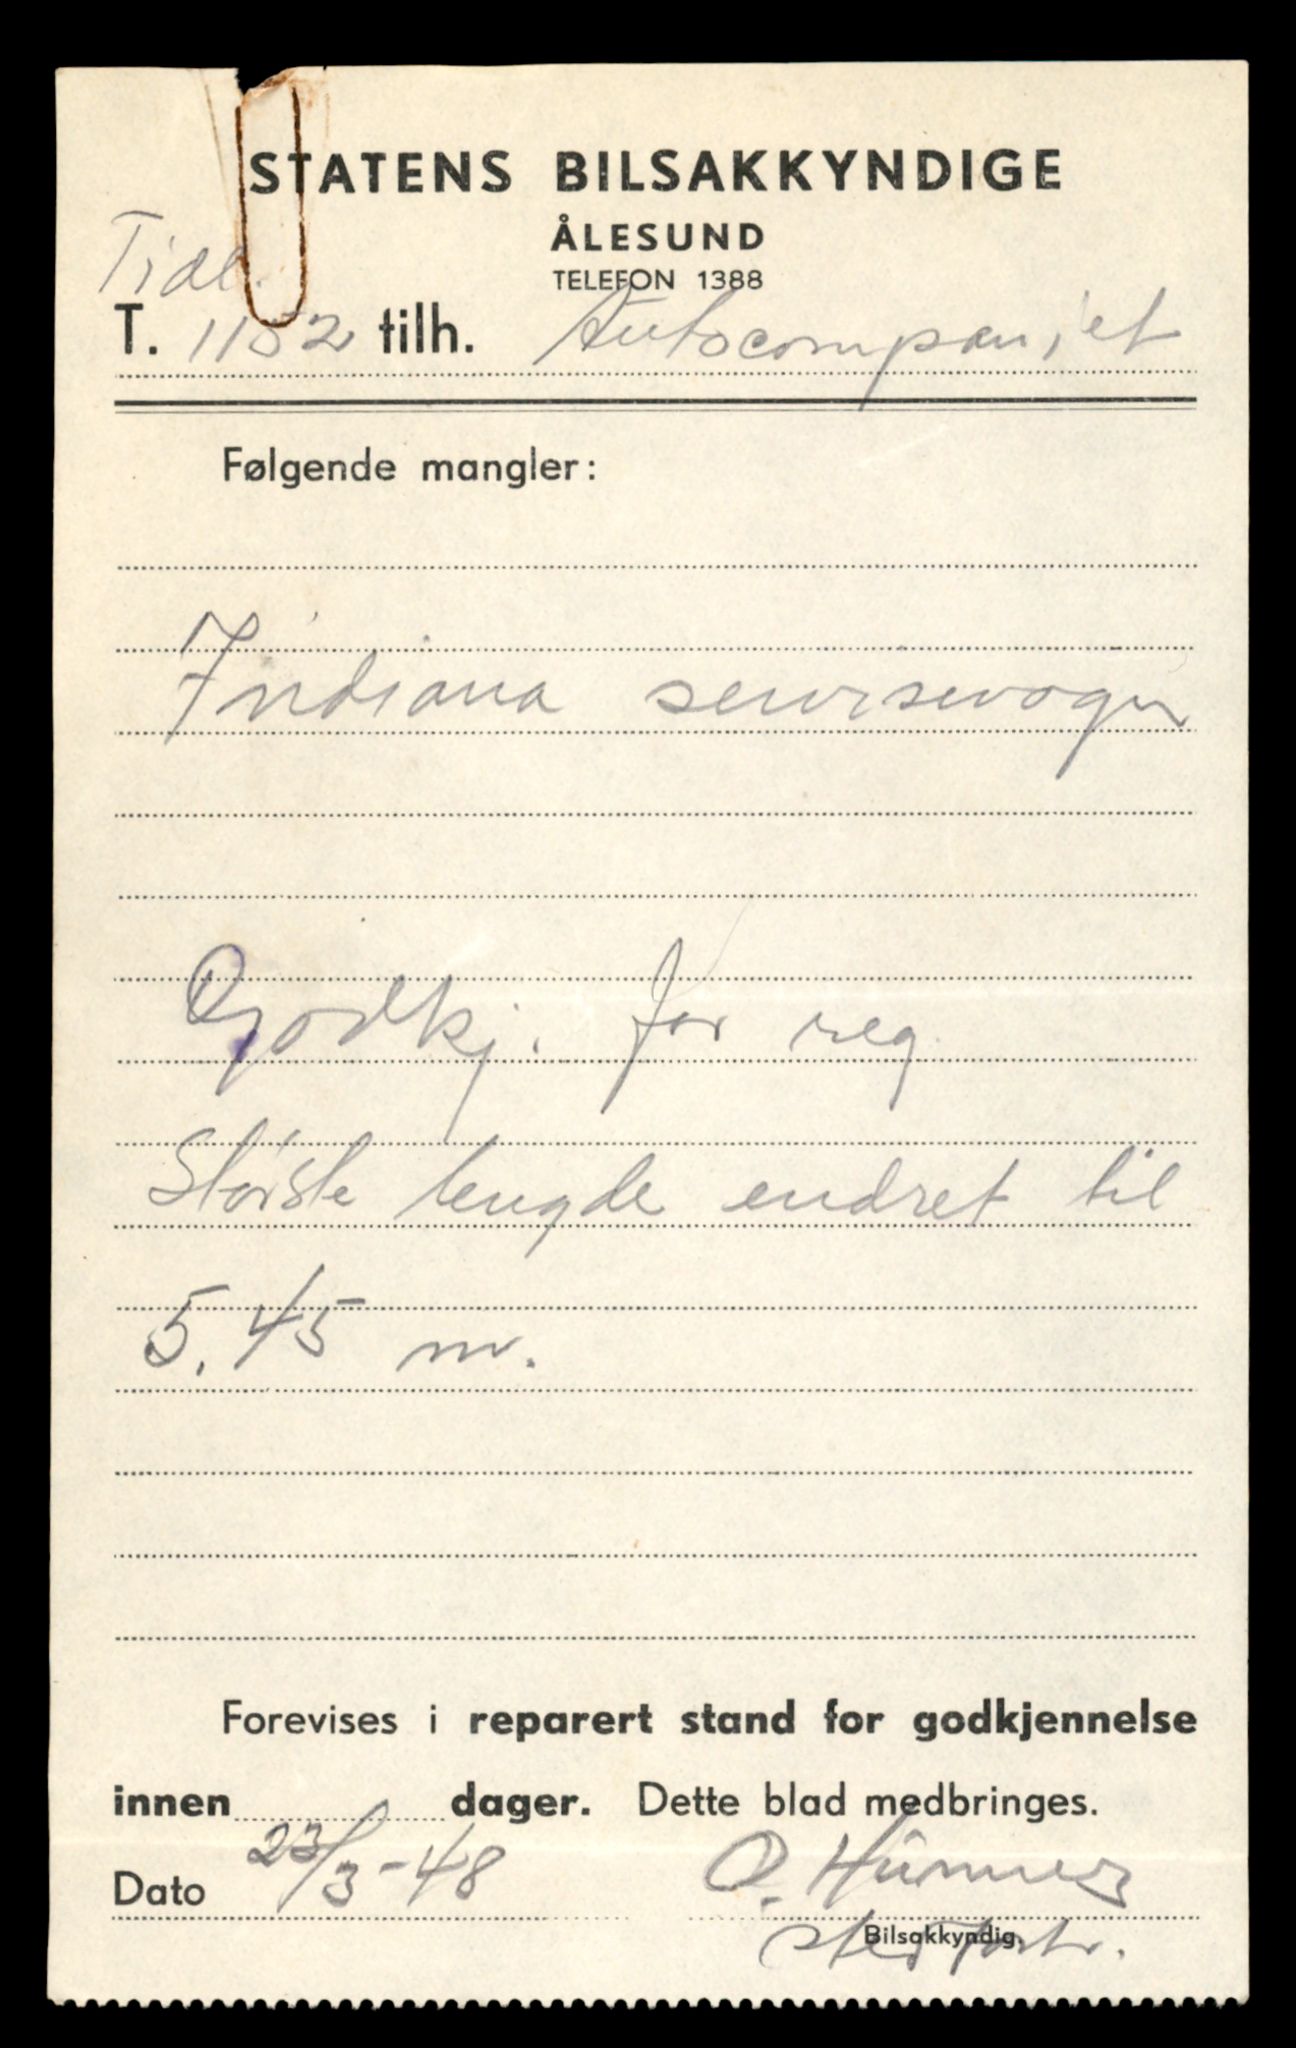 STATENS BILSAKKYNDIGE
ÅLESUND
TELEFON 1388
Tidl.
T. 1152 tilh. Autocompaniet
Følgende mangler:
Indiana servisevogn
Godkj. for reg.
Største lengde endret til
5.45 m.
Forevises i reparert stand for godkjennelse
innen dager. Dette blad medbringes.
Dato 23/3-48 O.
Bilsakkyndig.